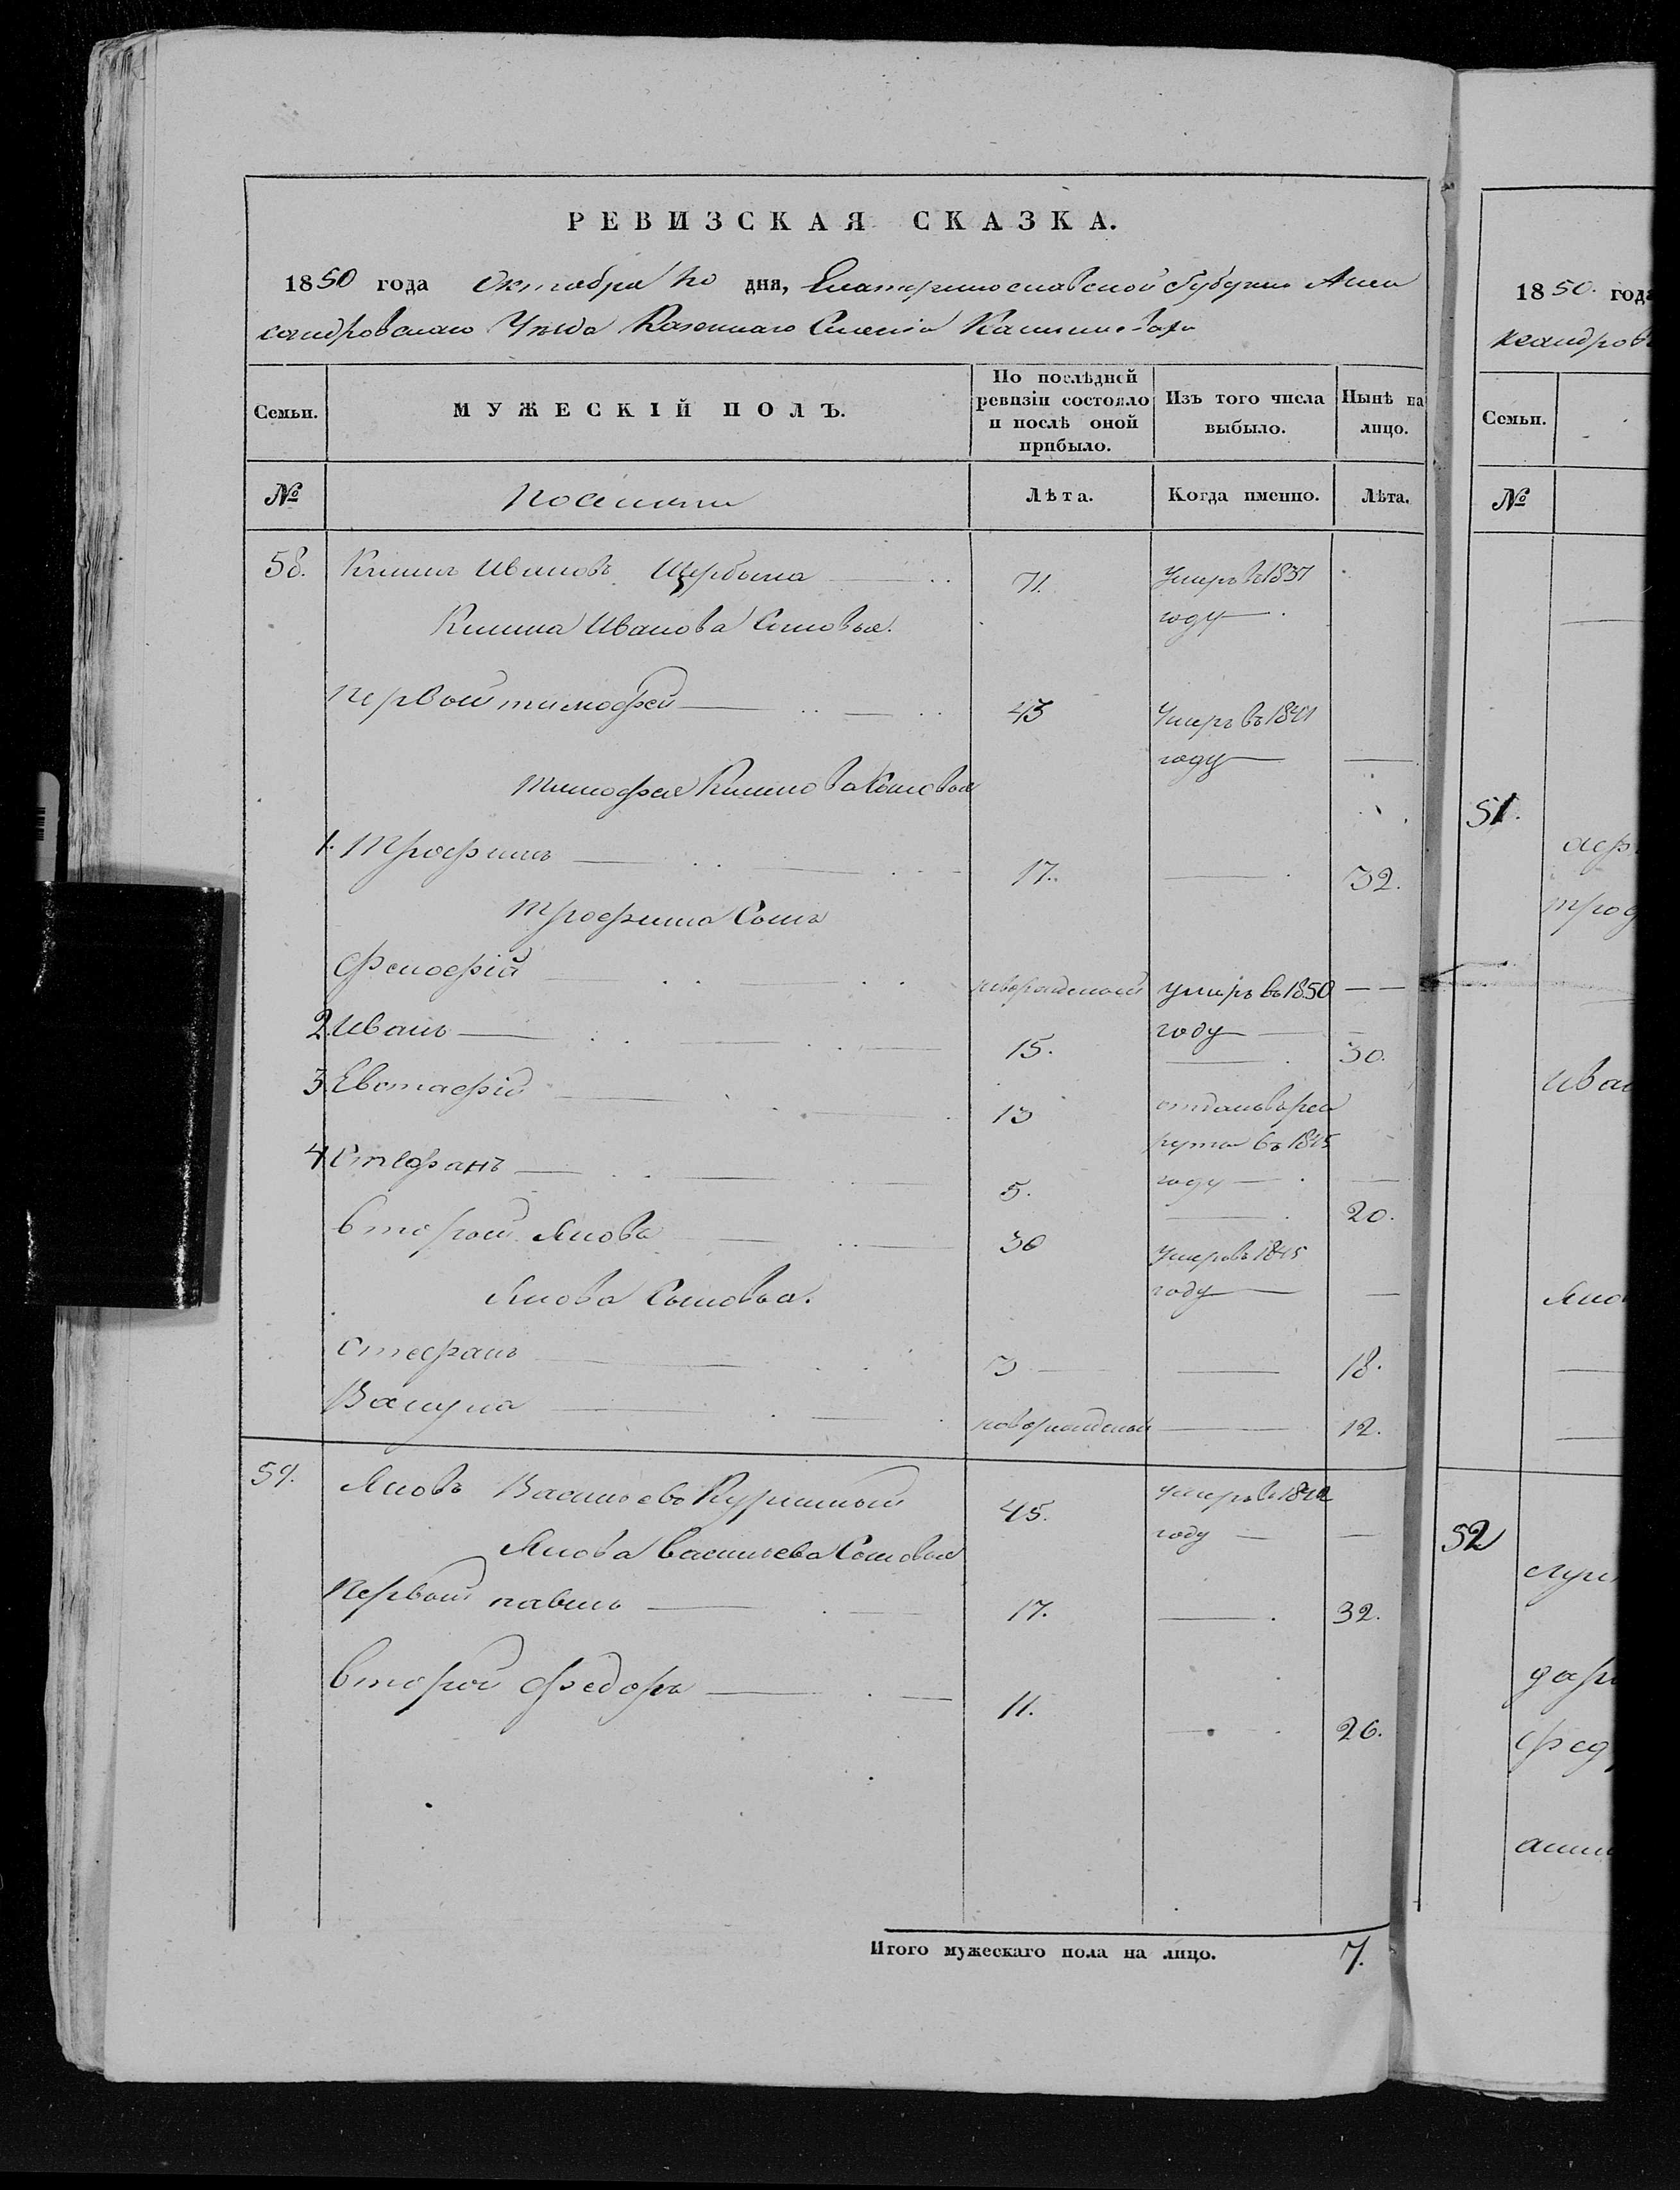 РЕВИЗСКАЯ СКАЗКА.
1850 года Октября дня, Екатеринославской Губернии Алек
сандровскаго Уѣзда Казеннаго Селенія
Семьи.
МУЖЕСКІЙ ПОЛЪ.
По послѣдней ревизіи состояло и послѣ оной прибыло.
Изъ того числа выбыло.
Нынѣ на лицо.
№
Лѣта.
Когда именно.
Лѣта.
58. Климъ Ивановъ Щербина 71. Умеръ в 1837
году
Клима Иванова Сыновья.
первый тимофей 43 Умеръ въ 1841
году
Тимофея Климова Сыновья
1. Трофимъ 17. 32.
Трофима Сынъ
новорожденный умеръ въ 1850
году
2. Иванъ 15. 30.
3. Евстафій 13 отданъ въ рек
руты въ 1845
году
4. Стефанъ 5. 20.
второй Яковъ 30 Умеръ въ 1845
году
Якова Сыновья.
Стефанъ 3 18.
Вакула новорожденный 12.
59. Яковъ Васильевъ 45. умеръ въ 1842
году
Якова Васильева Сыновья
Первый павелъ 17. 32.
второй Федоръ 11. 26.
Итого мужескаго пола на лицо. 7.
1850. года
ксандров
Семьи.
№
51.
троф
Иван
Яко
52
дар
Фед